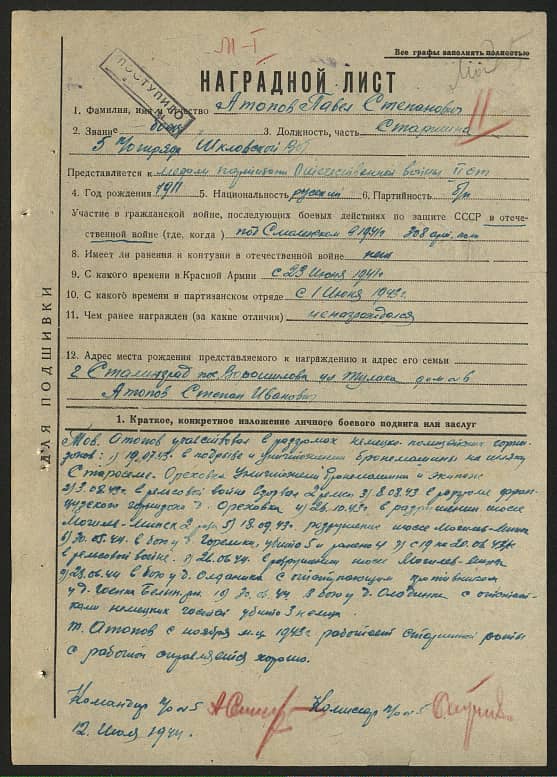 М-I
Все графы заполнять полностью
ПОСТУПИЛО
НАГРАДНОЙ ЛИСТ
II
1. Фамилия, имя и отчество Атопов Павел Степанович
2. Звание боец 3. Должность, часть Старшина
5 п/отряда Шкловской ВОГ
Представляется к медали партизану Отечественной войны II ст
4. Год рождения 1911 5. Национальность русский 6. Партийность б/п
Участие в гражданской войне, последующих боевых действиях по защите СССР в отече-
ственной войне (где, когда) под Смоленском в 1941г 308 арт. полк
8. Имеет ли ранения и контузии в отечественной войне нет
9. С какого времени в Красной Армии с 23 Июня 1941г
10. С какого времени в партизанском отряде с 1 Июня 1943г.
11. Чем ранее награжден (за какие отличия) не награждался
12. Адрес места рождения представляемого к награждению и адрес его семьи
г. Сталинград пос. Ворошилова ул Тулака дом
Атопов Степан Иванович
ДЛЯ ПОДШИВКИ
1. Краткое, конкретное изложение личного боевого подвига или заслуг
Тов. Атопов участвовал в разгромах немецко-полицейских гарни-
зонов: 1) 19.07.43г. в подрыве и уничтожении бронемашины на шляху
Староселье - Ореховка Уничтожены бронемашина и экипаж
2) 3.08.43г. в рельсовой войне взорвал 2 рельсы 3) 8.08.43 в разгроме фран-
цузского гарнизона д. Ореховка 4) 26.10.43г. в разрушении шоссе
Могилев-Минск 5) 18.09.43г. разрушение шоссе Могилев-Минск
30.05.44г. в бою у д. Горелица, убито 5 и ранено 4 7) с 19 по 20.06.43г
в рельсовой войне. 26.06.44г. в разрушении шоссе Могилев-Минск
28.06.44 в бою у д. с отступающим противником
у д. 30.06.44 в бою у д. с остат-
ками немецких частей убито 3 немца.
т. Атопов с ноября м-ца 1943г работает старшиной роты
с работой справляется хорошо.
Командир п/о №5 Комиссар п/о №5
12 Июля 1944г.